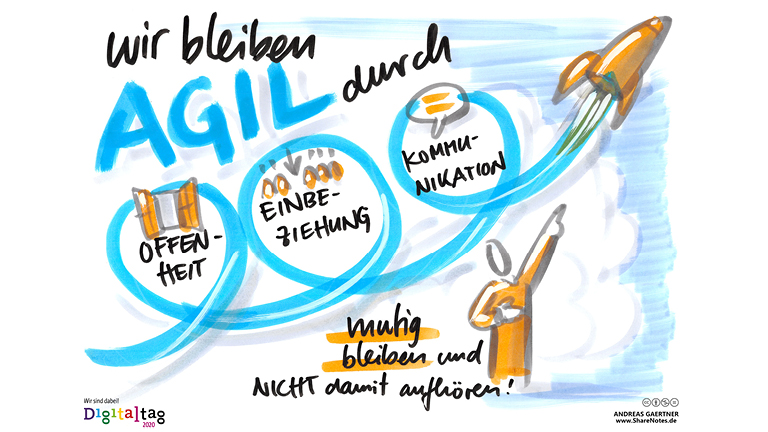 wir bleiben
AGIL durch
OFFEN-
HEIT
EINBE-
ZIEHUNG
KOMMU-
NIKATION
mutig
bleiben und
NICHT damit aufhören!
Wir sind dabei!
Digitaltag
2020
ANDREAS GAERTNER
www.ShareNotes.de